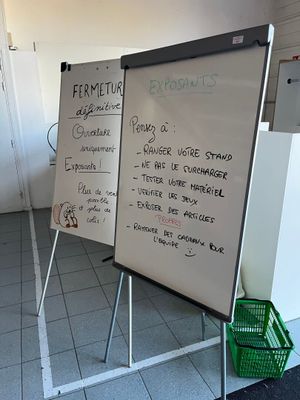 FERMETUR
définitive
Ouverture
uniquement
Exposants !
Plus de ven
possible
et plus de
colis !
EXPOSANTS
Pensez à :
- RANGER VOTRE STAND
- NE PAS LE SURCHARGER
- TESTER VOTRE MATÉRIEL
- VÉRIFIER LES JEUX
- EXPOSER DES ARTICLES
PROPRES
- RAMENER DES CADEAUX POUR
L'ÉQUIPE